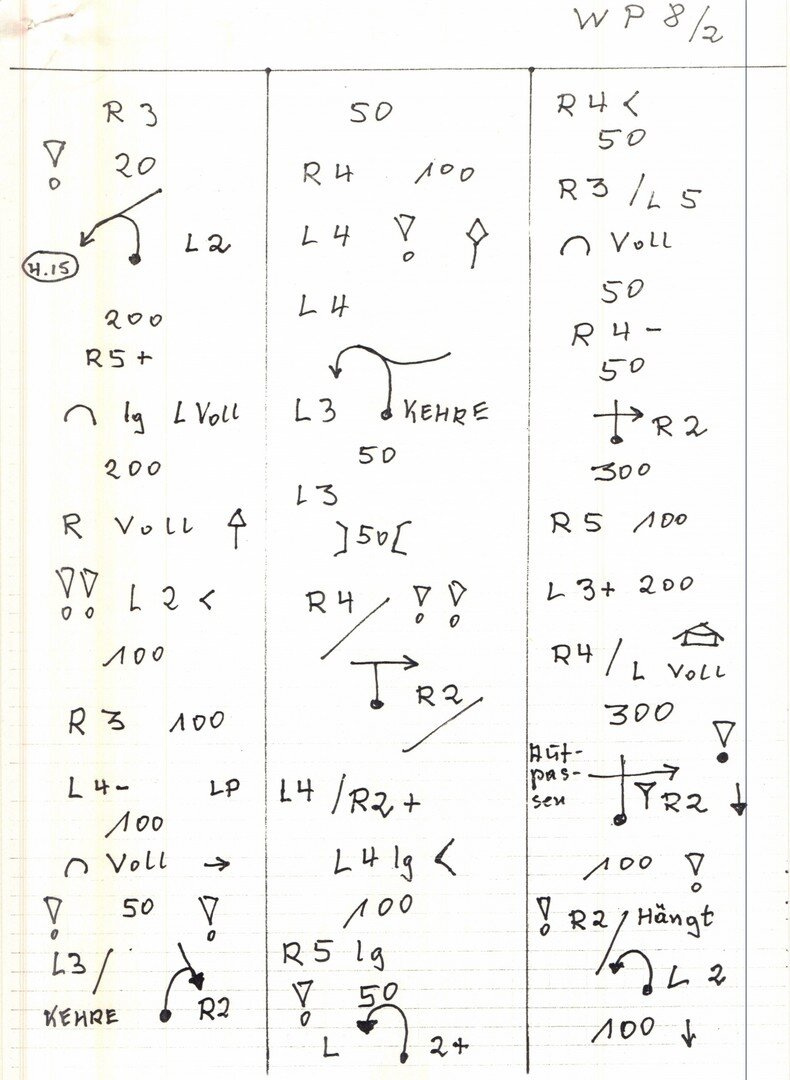 WP 8/2
R 3
! 20
L 2
4.15
200
R5+
lg L Voll
200
R Voll
!! L 2 <
100
R 3 100
L 4- LP
100
Voll →
! 50 !
L3/
KEHRE R2
50
R4 100
L4 !
L4
L3 KEHRE
50
L3
]50[
R4 / !!
R2
/
L4 /R2+
L4 lg <
100
R5 lg
! 50
L 2+
R4 <
50
R3 /L 5
Voll
50
R 4 -
50
R2
300
R5 100
L 3+ 200
R4 / L Voll
300
!
Auf-
pas-
sen R2 ↓
100 !
! R2 / Hängt
L 2
100 ↓